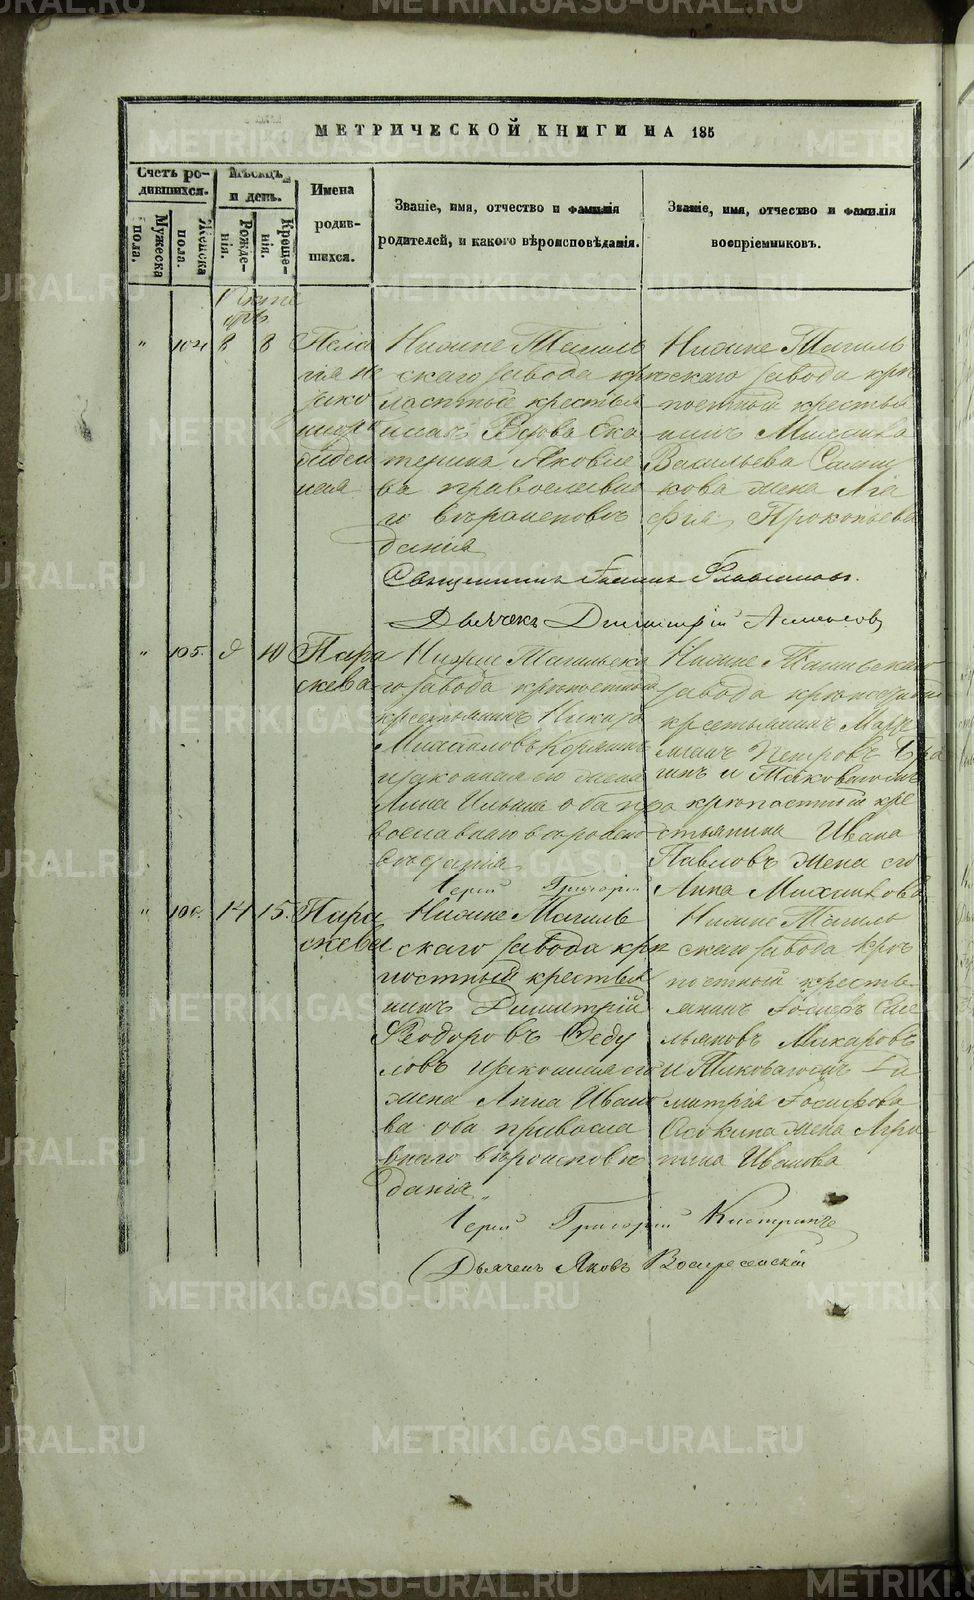 МЕТРИЧЕСКОЙ КНИГИ НА 185
Счетъ ро-
дившихся.
Мѣсяцъ
и день.
Имена
родив-
шихся.
Званіе, имя, отчество и фамилія
родителей, и какого вѣроисповѣданія.
Званіе, имя, отчество и фамилія
воспріемниковъ.
Мужеска
пола.
Женска
пола.
Рожде-
нія.
Креще-
нія.
" 104 8 8
Пела
гія не
зако
рожден
ная
Нижне Тагиль
скаго завода крѣ
постные крестья
Вдова Ека
терина Яковле
ва православна
го вѣроисповѣ
данія
Нижне Тагиль
скаго завода крѣ
постной крестья
нинъ Михаила
Васильева
кова жена Ага
фія Прокопьева
Священникъ
Дьячекъ Димитрій
" 105. 9 10
Пара
скева
Нижне Тагильска
го завода крѣпостный
крестьянинъ
Михайловъ
и законная его жена
Анна Ильина оба пра
вославнаго вѣроиспо
вѣданія
Нижне Тагильскаго
завода крѣпостный
крестьянинъ
Петровъ
и Таковагожъ
крѣпостный кре
стьянина Ивана
Павловъ жена его
Анна Михайлова
Іерей Григорій
" 106. 14 15.
Пара
скева
Нижне Тагиль
скаго завода крѣ
постный крестья
нинъ Димитрій
Ѳеодоровъ Деду
ловъ и законная его
жена Анна Ивано
ва оба правосла
внаго вѣроисповѣ
данія
Нижне Тагиль
скаго завода крѣ
постный кресть
янинъ Іосифъ Еме
льяновъ Макаровъ
и Таковагожъ Ди
митрія Іосифова
Осокина жена Агри
пина Иванова
Іерей Григорій
Дьячекъ Яковъ Воскресенскій
METRIKI.GASO-URAL.RU